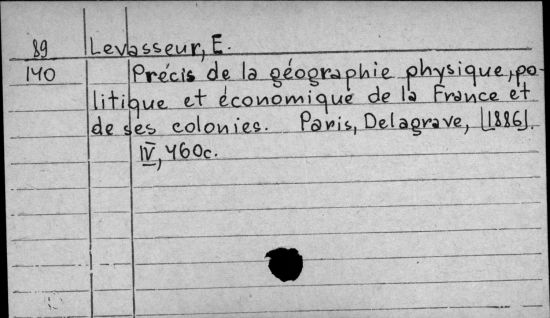 89 Levasseur, E.
140 Précis de la géographie physique, po-
litique et économique de la France et
de ses colonies. Paris, Delagrave, [1886].
IV, 460c.